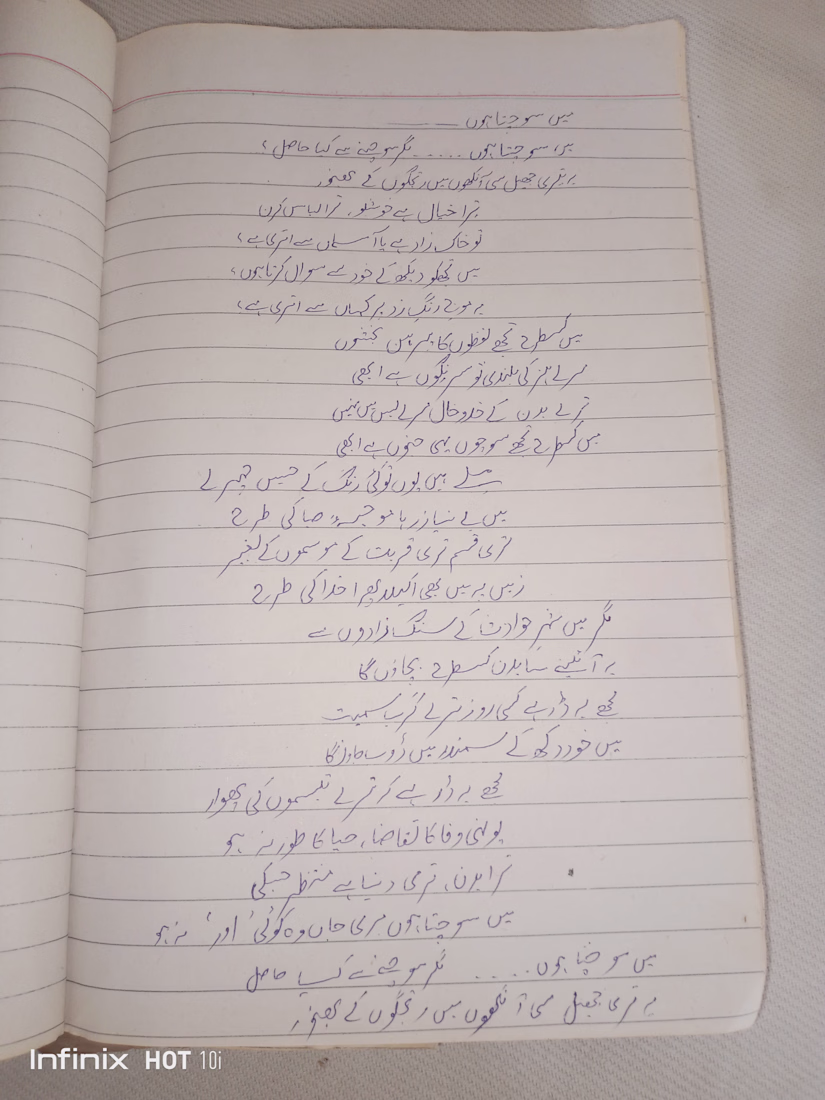 میں سوچتا ہوں ـــــــ
میں سوچتا ہوں ..... مگر سوچنے سے کیا حاصل؟
یہ تیری جھیل سی آنکھوں میں رتجگوں کے بھنور
ترا خیال ہے خوشبو، ترا لباس کرن
تو خاک زاد ہے یا آسماں سے اتری ہے؟
میں تجھکو دیکھ کے خود سے سوال کرتا ہوں؛
یہ موج رنگ زمیں پر کہاں سے اتری ہے؟
میں کسطرح تجھے لفظوں کا پیرہن بخشوں
مرے ہنر کی بلندی تو سرنگوں ہے ابھی
ترے بدن کے خدوخال میرے بس میں نہیں
میں کسطرح تجھے سوچوں یہی جنوں ہے ابھی
ملے ہیں یوں تو کئی رنگ کے حسیں چہرے
میں بے نیاز رہا موجہء صبا کی طرح
تری قسم تری قربت کے موسموں کے بغیر
زمیں پہ میں بھی اکیلا پھرا خدا کی طرح
مگر میں شہر حوادث کے سنگ زادوں سے
یہ آئینے سا بدن کسطرح بچاؤں گا
مجھے یہ ڈر ہے کسی روز ترے کرب سمیت
میں خود دکھ کے سمندر میں ڈوب جاؤنگا
مجھے یہ ڈر ہے کہ ترے تبسموں کی پھوار
یونہی وفا کا تقاضا، حیا کا طور نہ ہو
ترا بدن، تری دنیا ہے منتظر جسکی
میں سوچتا ہوں مری جاں وہ کوئی 'اور' نہ ہو
میں سوچتا ہوں ..... مگر سوچنے سے کیا حاصل
یہ تری جھیل سی آنکھوں میں رتجگوں کے بھنور
Infinix HOT 10i